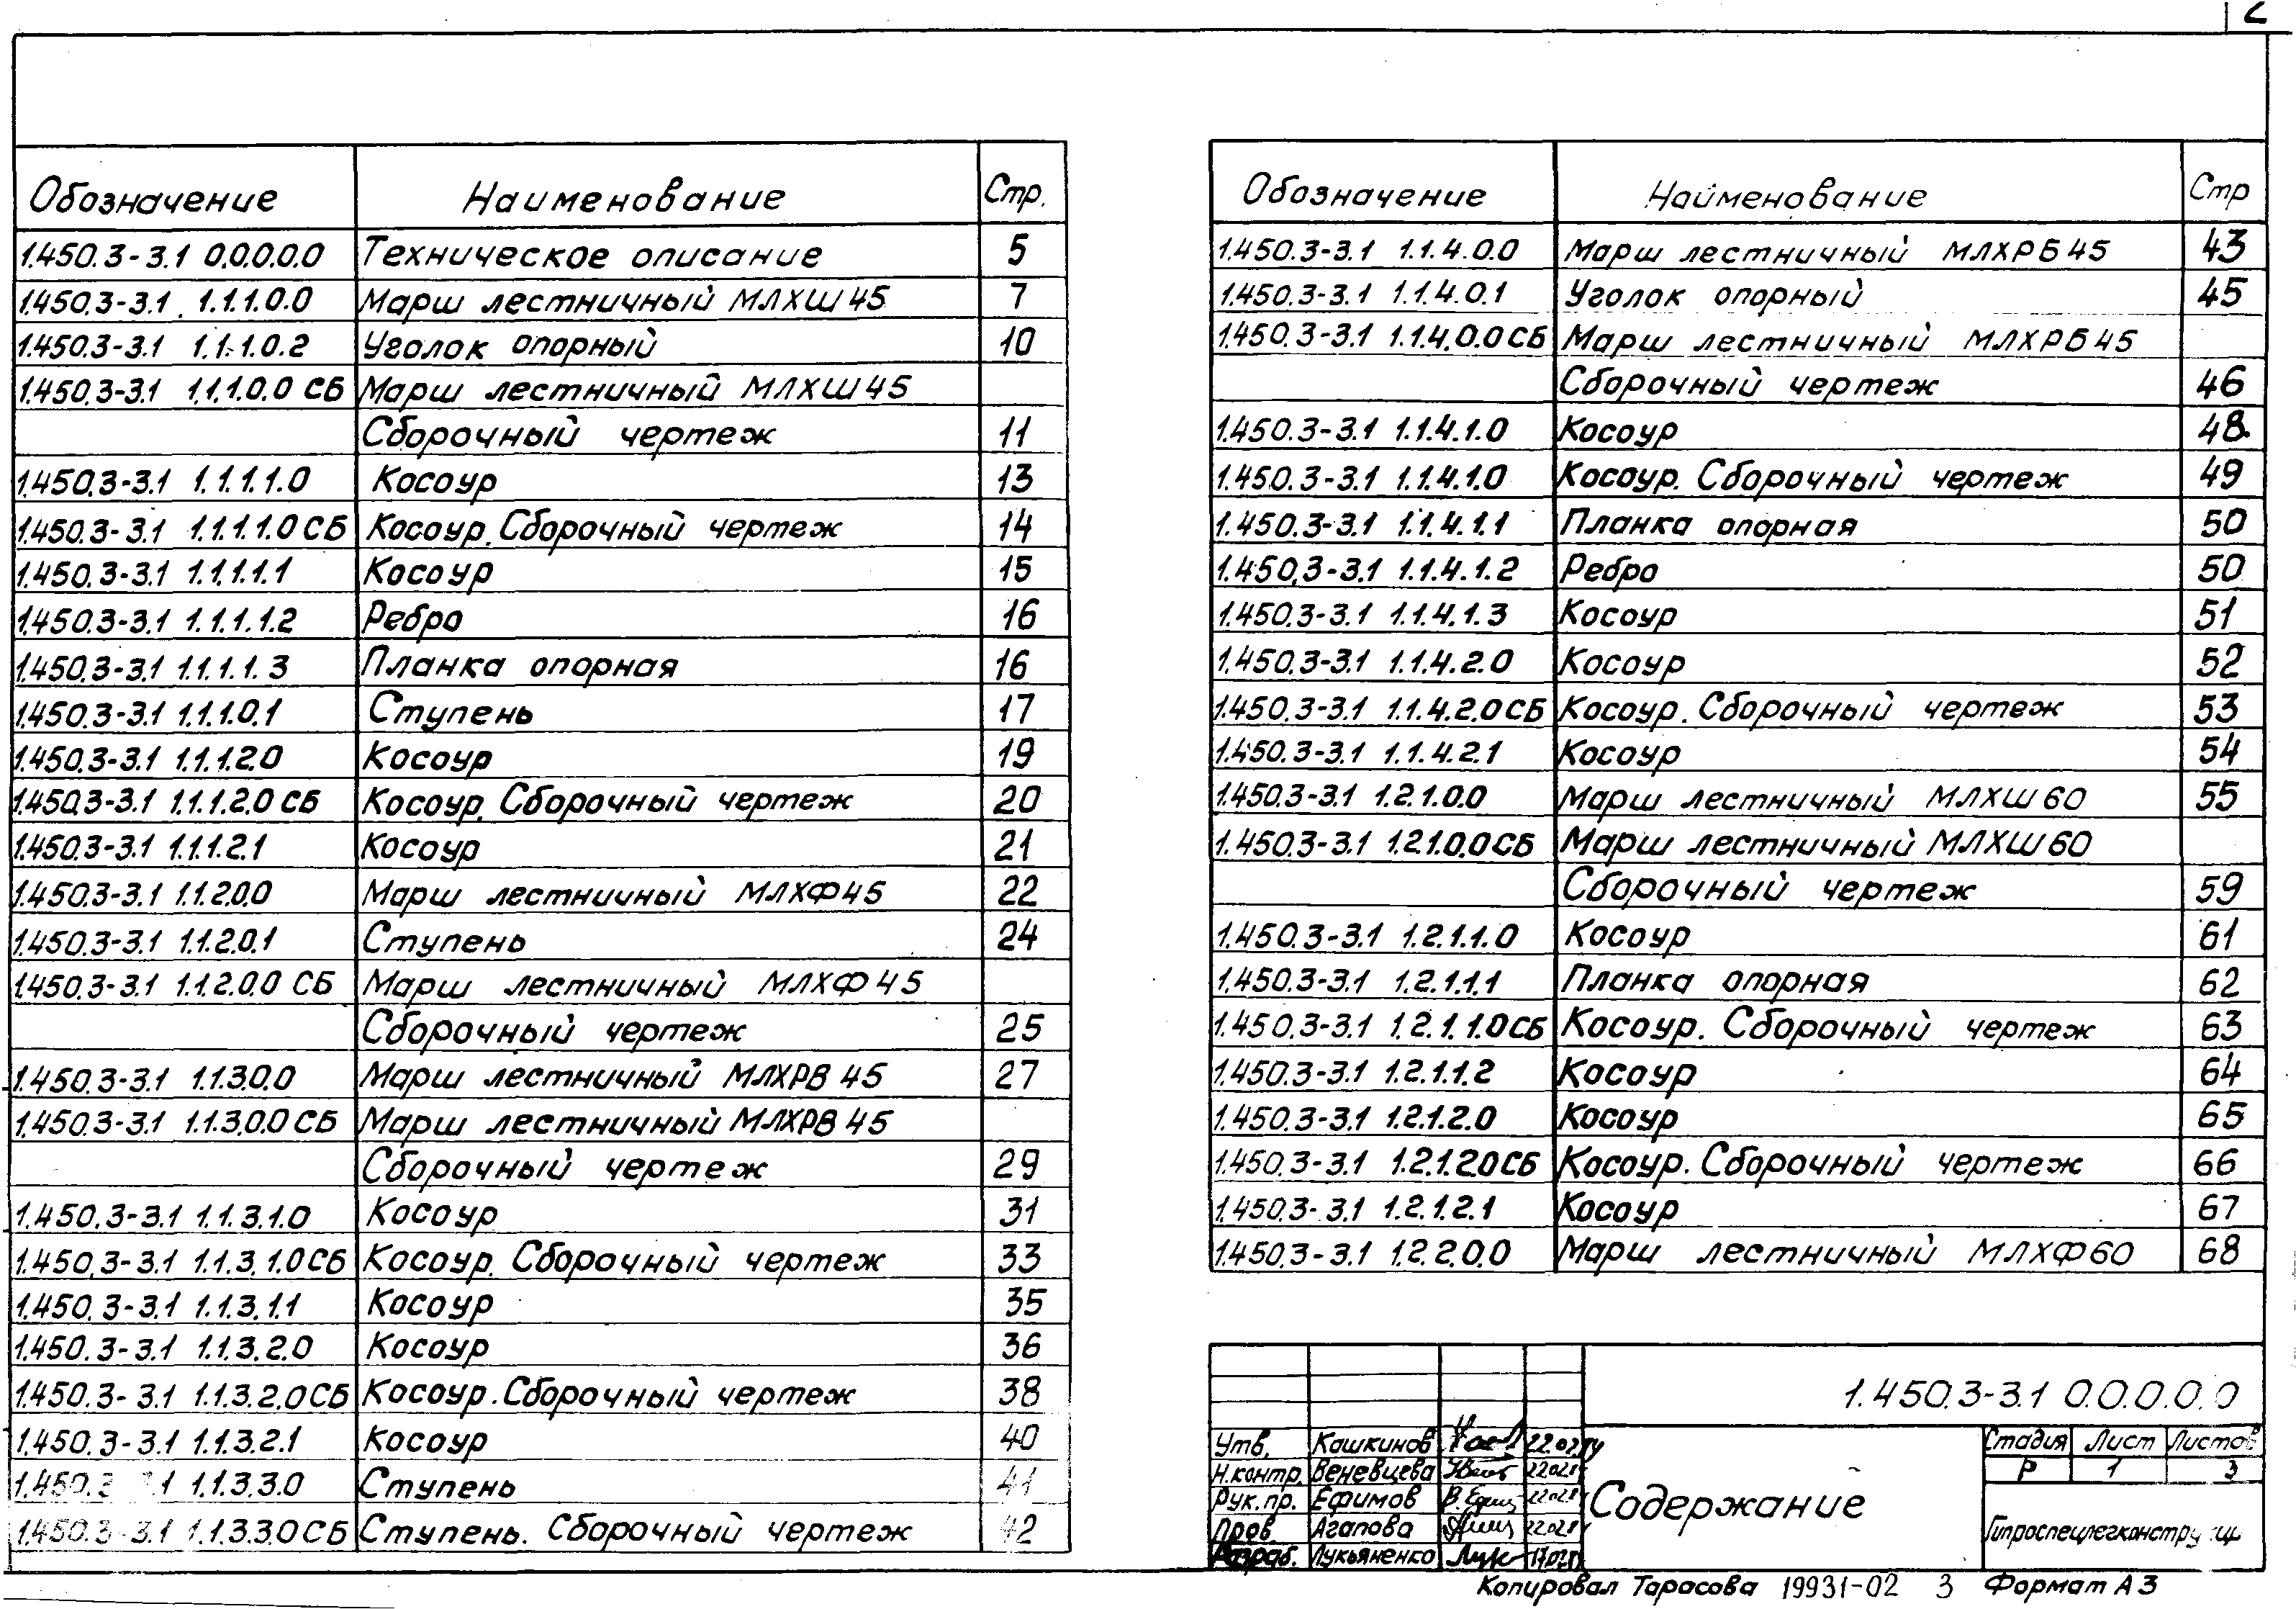 2
Обозначение Наименование Стр.
1.450.3-3.1 0.0.0.0.0 Техническое описание 5
1.450.3-3.1 1.1.1.0.0 Марш лестничный МЛХШ45 7
1.450.3-3.1 1.1.1.0.2 Уголок опорный 10
1.450.3-3.1 1.1.1.0.0 СБ Марш лестничный МЛХШ45
Сборочный чертеж 11
1.450.3-3.1 1.1.1.1.0 Косоур 13
1.450.3-3.1 1.1.1.1.0 СБ Косоур. Сборочный чертеж 14
1.450.3-3.1 1.1.1.1.1 Косоур 15
1.450.3-3.1 1.1.1.1.2 Ребро 16
1.450.3-3.1 1.1.1.1.3 Планка опорная 16
1.450.3-3.1 1.1.1.0.1 Ступень 17
1.450.3-3.1 1.1.1.2.0 Косоур 19
1.450.3-3.1 1.1.1.2.0 СБ Косоур. Сборочный чертеж 20
1.450.3-3.1 1.1.1.2.1 Косоур 21
1.450.3-3.1 1.1.2.0.0 Марш лестничный МЛХФ45 22
1.450.3-3.1 1.1.2.0.1 Ступень 24
1.450.3-3.1 1.1.2.0.0 СБ Марш лестничный МЛХФ45
Сборочный чертеж 25
1.450.3-3.1 1.1.3.0.0 Марш лестничный МЛХРВ 45 27
1.450.3-3.1 1.1.3.0.0 СБ Марш лестничный МЛХРВ 45
Сборочный чертеж 29
1.450.3-3.1 1.1.3.1.0 Косоур 31
1.450.3-3.1 1.1.3.1.0 СБ Косоур. Сборочный чертеж 33
1.450.3-3.1 1.1.3.1.1 Косоур 35
1.450.3-3.1 1.1.3.2.0 Косоур 36
1.450.3-3.1 1.1.3.2.0 СБ Косоур. Сборочный чертеж 38
1.450.3-3.1 1.1.3.2.1 Косоур 40
1.450.3-3.1 1.1.3.3.0 Ступень 41
1.450.3-3.1 1.1.3.3.0 СБ Ступень. Сборочный чертеж 42
Обозначение Наименование Стр
1.450.3-3.1 1.1.4.0.0 Марш лестничный МЛХРБ45 43
1.450.3-3.1 1.1.4.0.1 Уголок опорный 45
1.450.3-3.1 1.1.4.0.0 СБ Марш лестничный МЛХРБ45
Сборочный чертеж 46
1.450.3-3.1 1.1.4.1.0 Косоур 48
1.450.3-3.1 1.1.4.1.0 Косоур. Сборочный чертеж 49
1.450.3-3.1 1.1.4.1.1 Планка опорная 50
1.450.3-3.1 1.1.4.1.2 Ребро 50
1.450.3-3.1 1.1.4.1.3 Косоур 51
1.450.3-3.1 1.1.4.2.0 Косоур 52
1.450.3-3.1 1.1.4.2.0 СБ Косоур. Сборочный чертеж 53
1.450.3-3.1 1.1.4.2.1 Косоур 54
1.450.3-3.1 1.2.1.0.0 Марш лестничный МЛХШ60 55
1.450.3-3.1 1.2.1.0.0 СБ Марш лестничный МЛХШ60
Сборочный чертеж 59
1.450.3-3.1 1.2.1.1.0 Косоур 61
1.450.3-3.1 1.2.1.1.1 Планка опорная 62
1.450.3-3.1 1.2.1.1.0 СБ Косоур. Сборочный чертеж 63
1.450.3-3.1 1.2.1.1.2 Косоур 64
1.450.3-3.1 1.2.1.2.0 Косоур 65
1.450.3-3.1 1.2.1.2.0 СБ Косоур. Сборочный чертеж 66
1.450.3-3.1 1.2.1.2.1 Косоур 67
1.450.3-3.1 1.2.2.0.0 Марш лестничный МЛХФ60 68
1.450.3-3.1 0.0.0.0.0
Утв. Кашкинов
Н.контр. Веневцева
Рук.пр. Ефимов
Пров. Агапова
Разраб. Лукьяненко
Содержание
Стадия Лист Листов
Р 1 3
Копировал Тарасова 19931-02 3 Формат А3